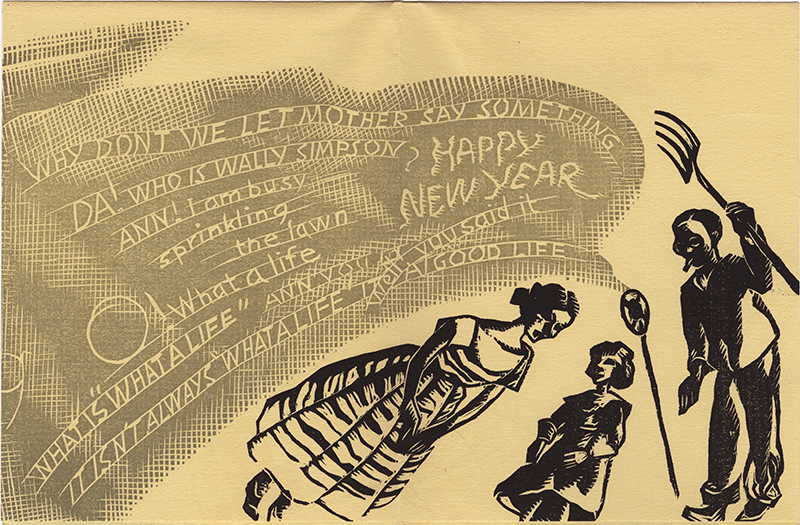 WHY DONT WE LET MOTHER SAY SOMETHING
DA! WHO IS WALLY SIMPSON?
HAPPY
NEW YEAR
ANN! I am busy
sprinkling
the lawn
O! What a life
WHAT IS "WHAT A LIFE" ANN YOU
you said it
IT ISNT ALWAYS "WHAT A LIFE
A GOOD LIFE